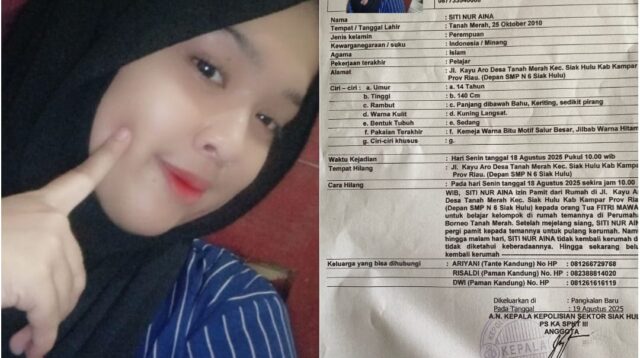 087733040008
Nama : SITI NUR AINA
Tempat / Tanggal Lahir : Tanah Merah, 25 Oktober 2010
Jenis kelamin : Perempuan
Kewarganegaraan / suku : Indonesia / Minang
Agama : Islam
Pekerjaan terakhir : Pelajar
Alamat : Jl. Kayu Aro Desa Tanah Merah Kec. Siak Hulu Kab Kampar
Prov Riau. (Depan SMP N 6 Siak Hulu)
Ciri – ciri : a. Umur : a. 14 Tahun
b. Tinggi : b. 140 Cm
c. Rambut : c. Panjang dibawah Bahu, Keriting, sedikit pirang
d. Warna Kulit : d. Kuning Langsat.
e. Bentuk Tubuh : e. Sedang
f. Pakaian Terakhir : f. Kemeja Warna Bitu Motif Salur Besar, Jilbab Warna Hitam
g. Ciri-ciri khusus : g.
Waktu Kejadian : Hari Senin tanggal 18 Agustus 2025 Pukul 10.00 wib
Tempat Hilang : Jl. Kayu Aro Desa Tanah Merah Kec. Siak Hulu Kab Kampar
Prov Riau. (Depan SMP N 6 Siak Hulu)
Cara Hilang : Pada hari Senin tanggal 18 Agustus 2025 sekira jam 10.00
WIB, SITI NUR AINA Izin Pamit dari Rumah di Jl. Kayu A
Desa Tanah Merah Kec. Siak Hulu Kab Kampar Prov Riau
(Depan SMP N 6 Siak Hulu) kepada orang Tua FITRI MAWA
untuk belajar kelompok di rumah temannya di Perumaha
Borneo Tanah Merah. Setelah mejelang siang, SITI NUR AI
pergi pamit kepada temannya untuk pulang kerumah. Nam
hingga malam hari, SITI NUR AINA tidak kembali kerumah d
tidak diketahui keberadaannya. Hingga sekarang belu
kembali kerumah
Keluarga yang bisa dihubungi : ARIYANI (Tante Kandung) No. HP : 081266729768
RISALDI (Paman Kandung) No. HP : 082388814020
DWI (Paman Kandung) No. HP : 081261616119
Dikeluarkan di : Pangkalan Baru
Pada Tanggal : 19 Agustus 2025
A.N. KEPALA KEPOLISIAN SEKTOR SIAK HUL
PS KA SPKT III
ANGGOTA
KEPALA